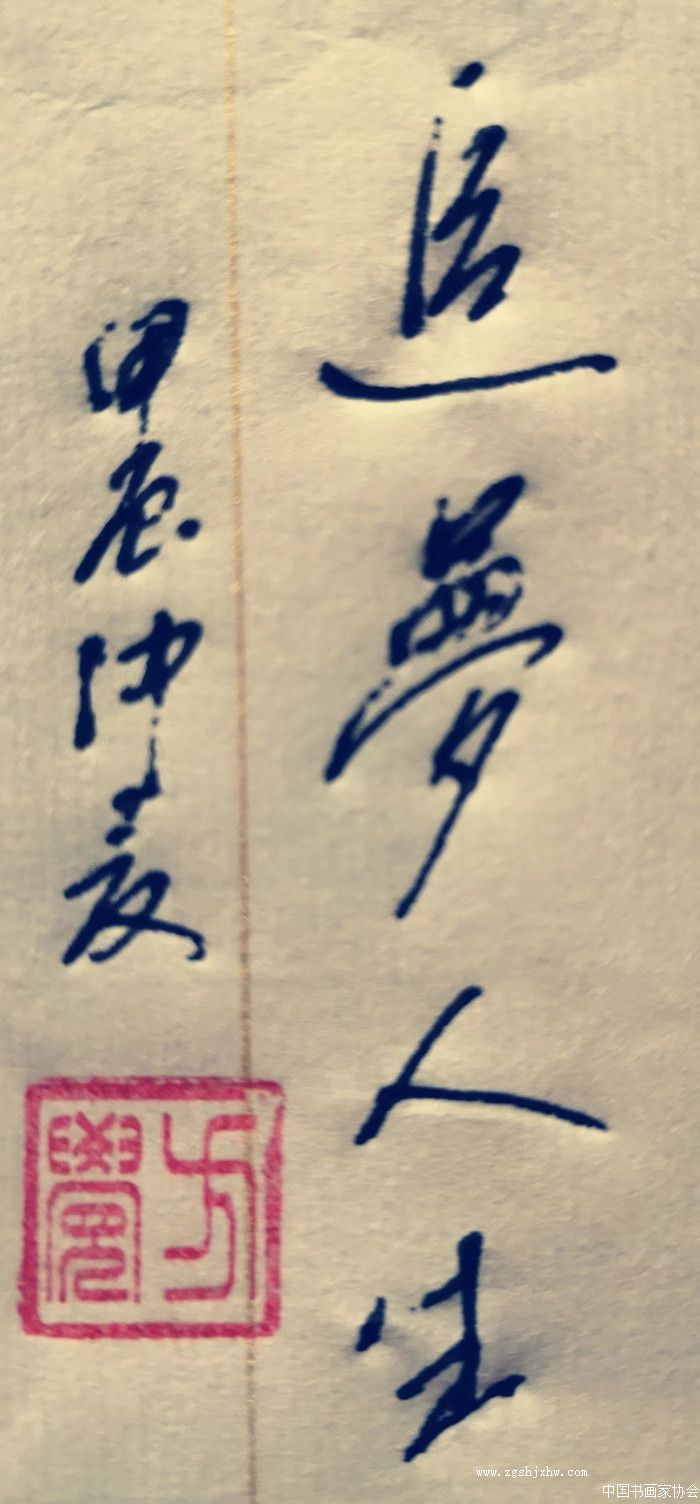 追夢人生
甲辰仲夏
方覺
www.zgshjxhw.com
中国书画家协会